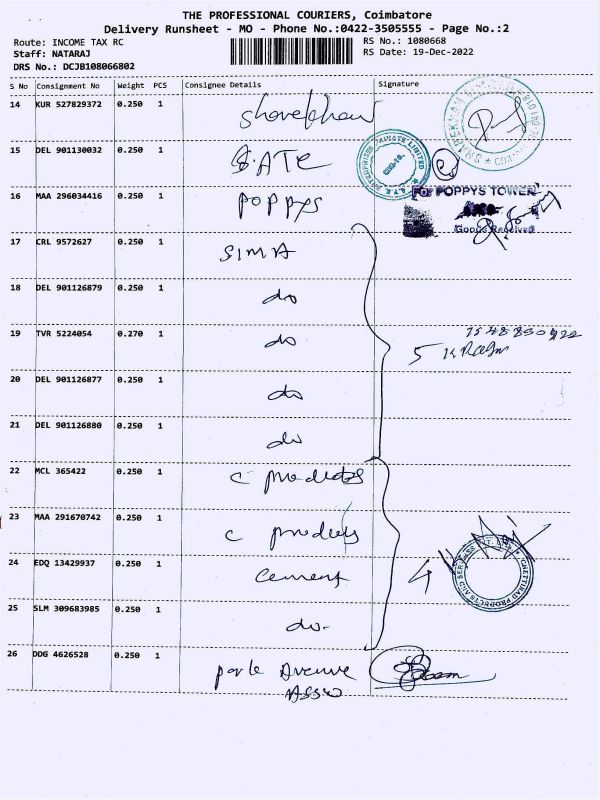 THE PROFESSIONAL COURIERS, Coimbatore
Delivery Runsheet - MO - Phone No.:0422-3505555 - Page No.:2
Route: INCOME TAX RC
RS No.: 1080668
Staff: NATARAJ
RS Date: 19-Dec-2022
DRS No.: DCJB108066802
S No Consignment No Weight PCS Consignee Details Signature
14 KUR 527829372 0.250 1
15 DEL 901130032 0.250 1 GATE
16 MAA 296034416 0.250 1 POPPYS
For POPPYS TOWER
Goods Received
17 CRL 9572627 0.250 1 SIMA
18 DEL 901126879 0.250 1 do
19 TVR 5224054 0.270 1 do
5
20 DEL 901126877 0.250 1 do
21 DEL 901126880 0.250 1 do
22 MCL 365422 0.250 1 C products
23 MAA 291670742 0.250 1 C products
24 EDQ 13429937 0.250 1 cement 4
CHETTINAD PRODUCTS AND SERVICES
25 SLM 309683985 0.250 1 do-
26 DDG 4626528 0.250 1 parle Avenue
Asso